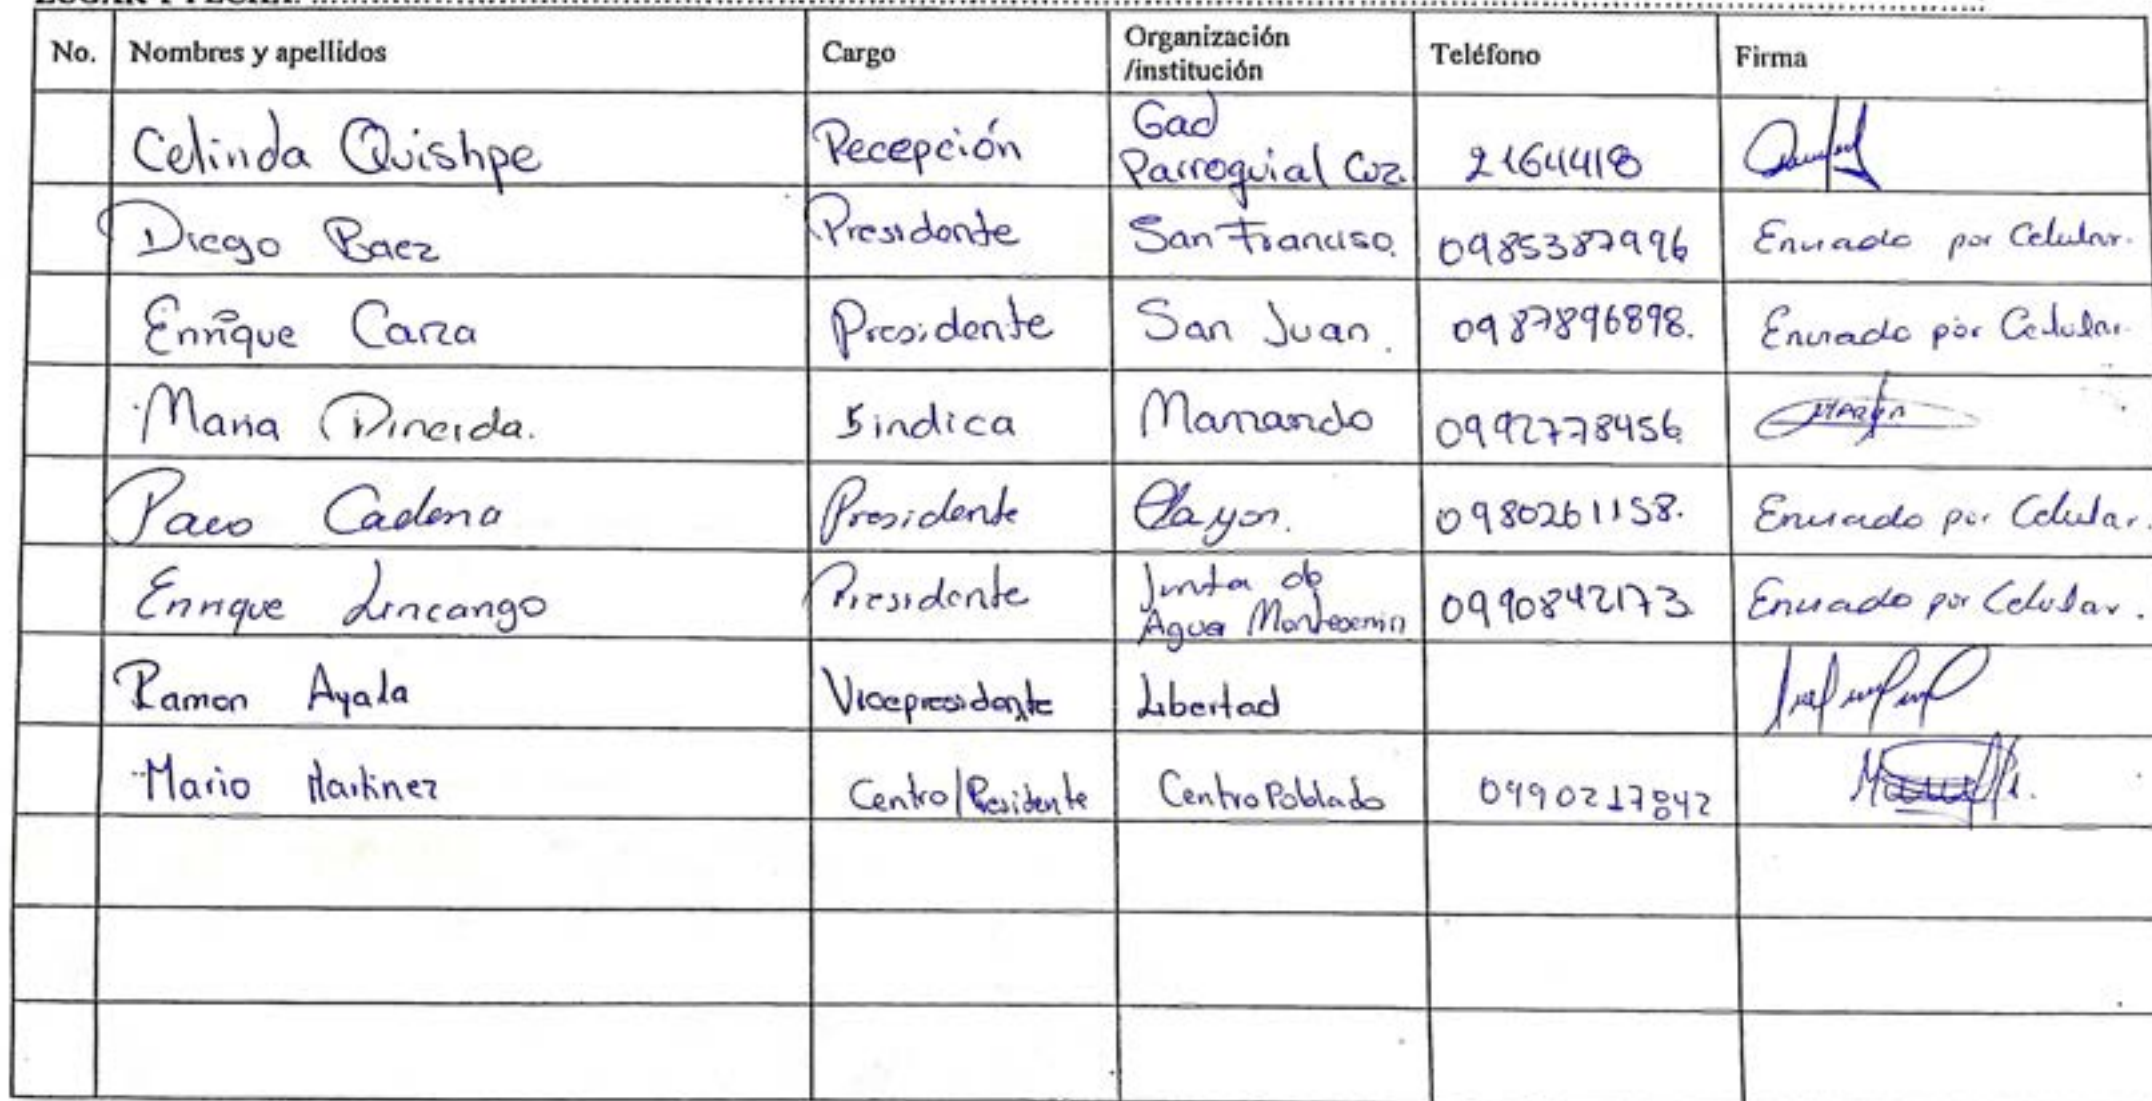 No. Nombres y apellidos Cargo Organización /institución Teléfono Firma
Celinda Quishpe Recepción Gad Parroquial Cuz. 2164418
Diego Baez Presidente San Francisco. 0985387996 Enviado por Celular.
Enrique Carza Presidente San Juan. 0987896898. Enviado por Celular.
Maria Sindica 0992778456
Paco Cadena Presidente Playon. 0980261158. Enviado por Celular.
Enrique Lincango Presidente Junta de Agua 0990842173 Enviado por Celular.
Ramon Ayala Vicepresidente Libertad
Mario Martinez Centro/Presidente Centro Poblado 0990217842